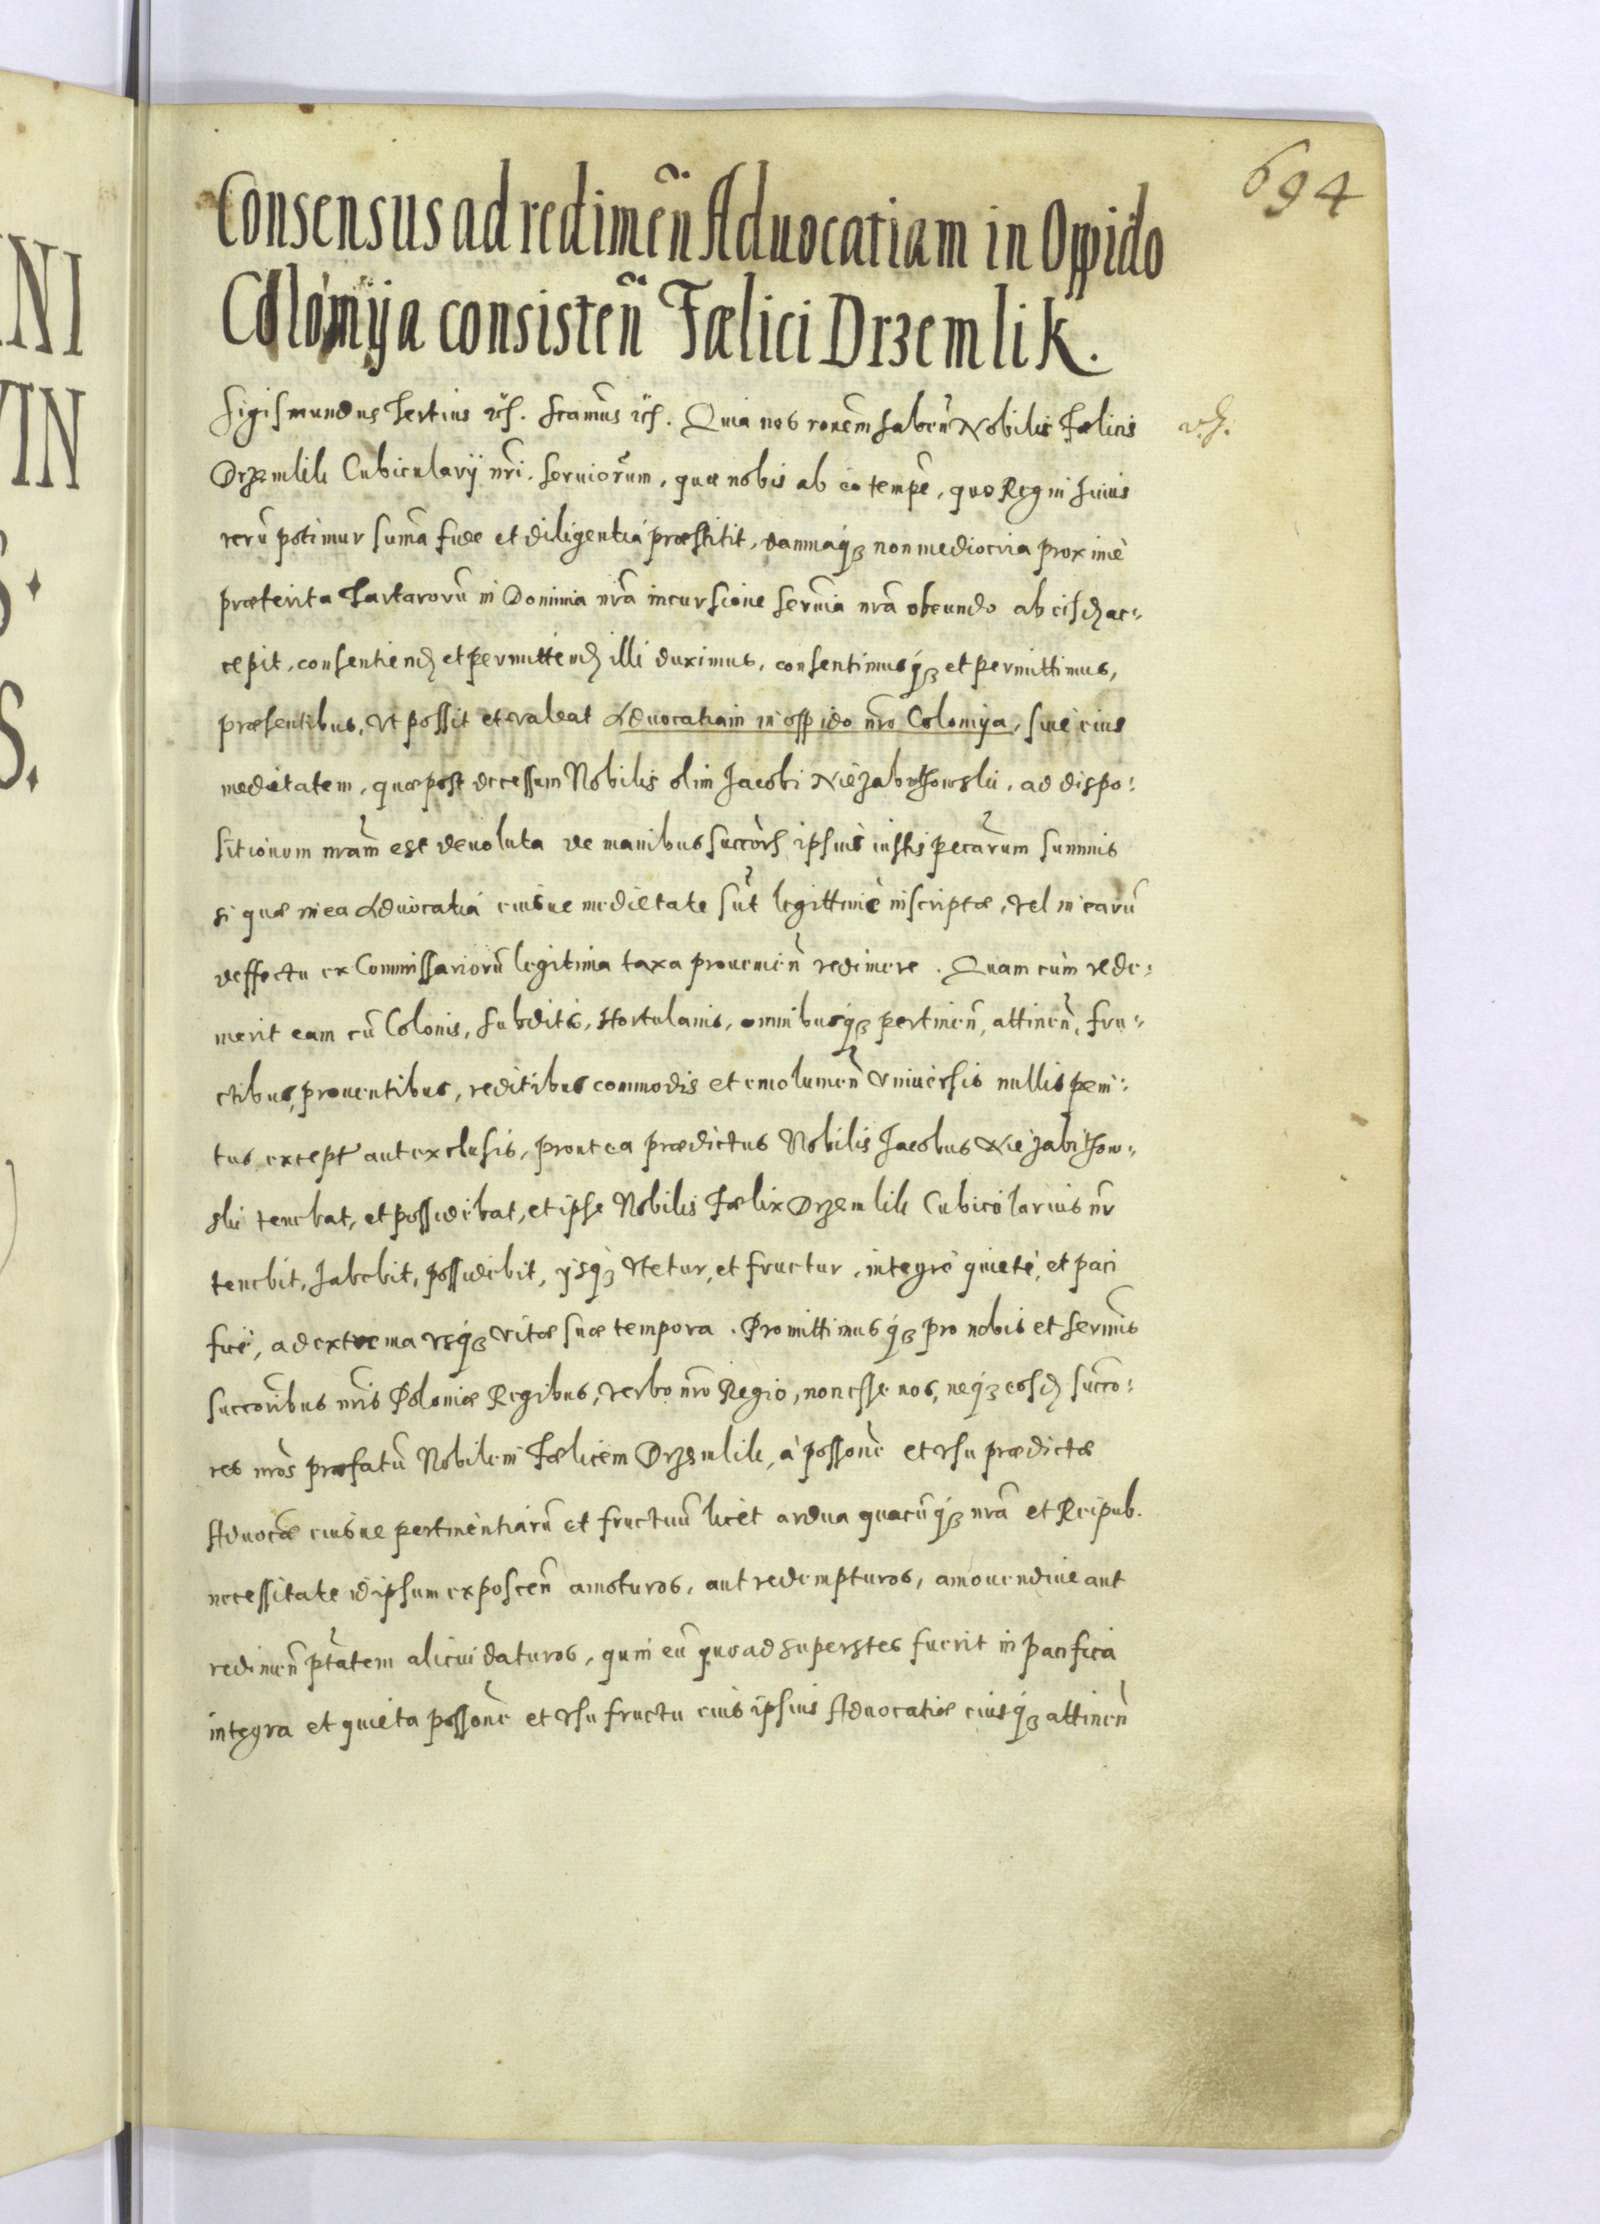 694
Consensus ad redimen̄ Aduocatiam in Oppido
Colomÿa consisten̄ Fælici Drzemlik.
Sigismundus Tertius etc. Scamus etc. Quia nos ronem haben̄ Nobilis Fælicis
Drzemlik Cubicularij nri. seruiciorum, quæ nobis ab eo tempe, quo Regni huius
rerū potimur suma fide et diligentia præstitit, damnaq3 non mediocria proximè
præterita Tartarorū in Dominia nra incursione seruitia nra obeundo ab eisd ac-
cepit, consentiend et permittend illi duximus, consentimusq3 et permittimus,
præsentibus, vt possit et valeat Aduocatiam in oppido nro Colomÿa, siue eius
medietatem, quæ post decessum Nobilis olim Jacobi Niezabithowskii, ad dispo-
sitionem nram est deuoluta de manibus succors ipsius iustis pecarum summis
si quæ in ea Aduocatia eiusue medietate sūt legittimè inscriptæ, vel in earū
deffectu ex Commissariorū legitima taxa prouenien̄ redimere. Quam cùm rede-
merit eam cū Colonis, subditis, Hortulanis, omnibusq3 pertinen̄, attinen̄, fru-
ctibus, prouentibus, reditibus commodis et emolumen̄ vniuersis nullis peni-
tus, except aut exclusis, prout ea prædictus Nobilis Jacobus Niezabithow-
skii tenebat, et possidebat, et ipse Nobilis Fælix Drzemlik Cubicularius nr
tenebit, habebit, possidebit, ijsq3 vtetur, et fruetur, integrè quietè, et paci
ficè, ad extrema vsq3 vitæ suæ tempora. Promittimusq3 pro nobis et sermis
succoribus nris Poloniæ Regibus, verbo nro Regio, non esse nos, neq3 eosd succo-
res nros præfatū Nobilem Fælicem Drzemlik, à possone et vsu prædictæ
Aduocæ eiusue pertinentiarū et fructuū licet ardua quacūq3 nra et Reipub.
necessitate id ipsum exposcen̄ amoturos, aut redempturos, amouendiue aut
redimen̄ ptatem alicui daturos, quin eū quoad superstes fuerit in pacifica
integra et quieta possone et vsufructu eius ipsius Aduocatiæ eiusq3 attinen̄